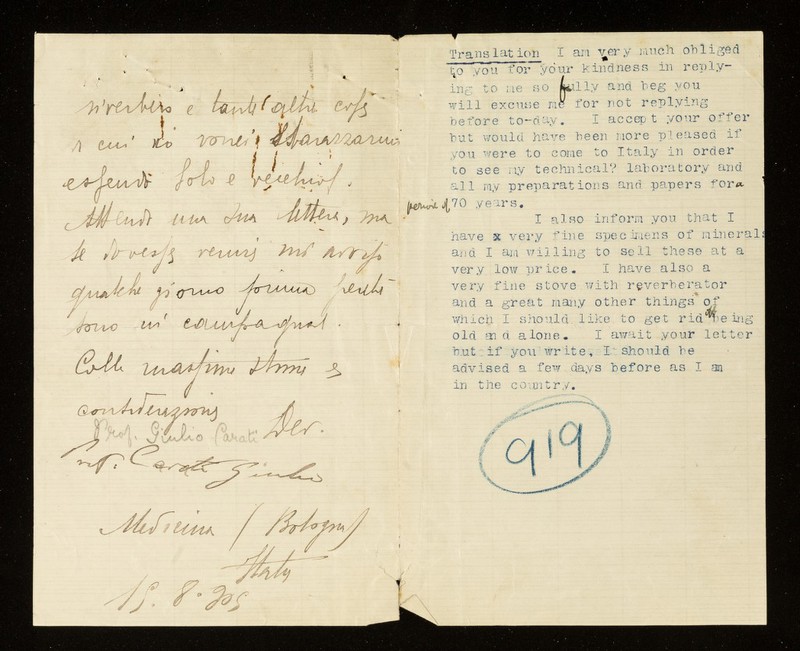 riverbero e tante altre cose
a cui io vorrei sbarazzarmi
essendo solo e vecchio.
Attendo una Sua lettera, ma
se dovesse venire mi avvisi
qualche giorno prima perché
sono in campagna.
Colla massima stima e
considerazione
Prof. Giulio Carati Dev.
Prof. Carati Giulio
Medicina (Bologna)
Italy
15. 8.
Translation I am very much obliged
to you for your kindness in reply-
ing to me so fully and beg you
will excuse me for not replying
before to-day. I accept your offer
but would have been more pleased if
you were to come to Italy in order
to see my technical? laboratory and
all my preparations and papers for a
period of 70 years.
I also inform you that I
have x very fine specimens of minerals
and I am willing to sell these at a
very low price. I have also a
very fine stove with reverberator
and a great many other things of
which I should like to get rid of being
old and alone. I await your letter
but if you write, I should be
advised a few days before as I am
in the country.
919